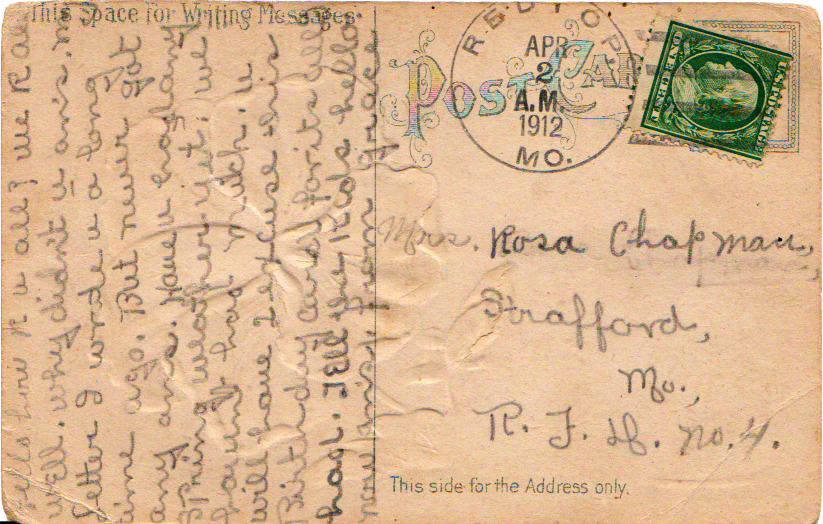 This Space for Writing Messages
Hello how r u all? we R all
well. why didn't u ans. my
letter I wrote u a long
time ago. But never got
any ans. Have u had any
Spring weather yet. we
haven't had much. u
will have 2 excuse this
Birthday card for its all I
had. Tell the kids hello
now ans, from Grace
POST CARD
RED TOP
APR
2
A.M.
1912
MO.
U.S. POSTAGE
ONE CENT
Mrs. Rosa Chapman,
Strafford,
Mo.,
R. F. D. No. 4.
This side for the Address only.